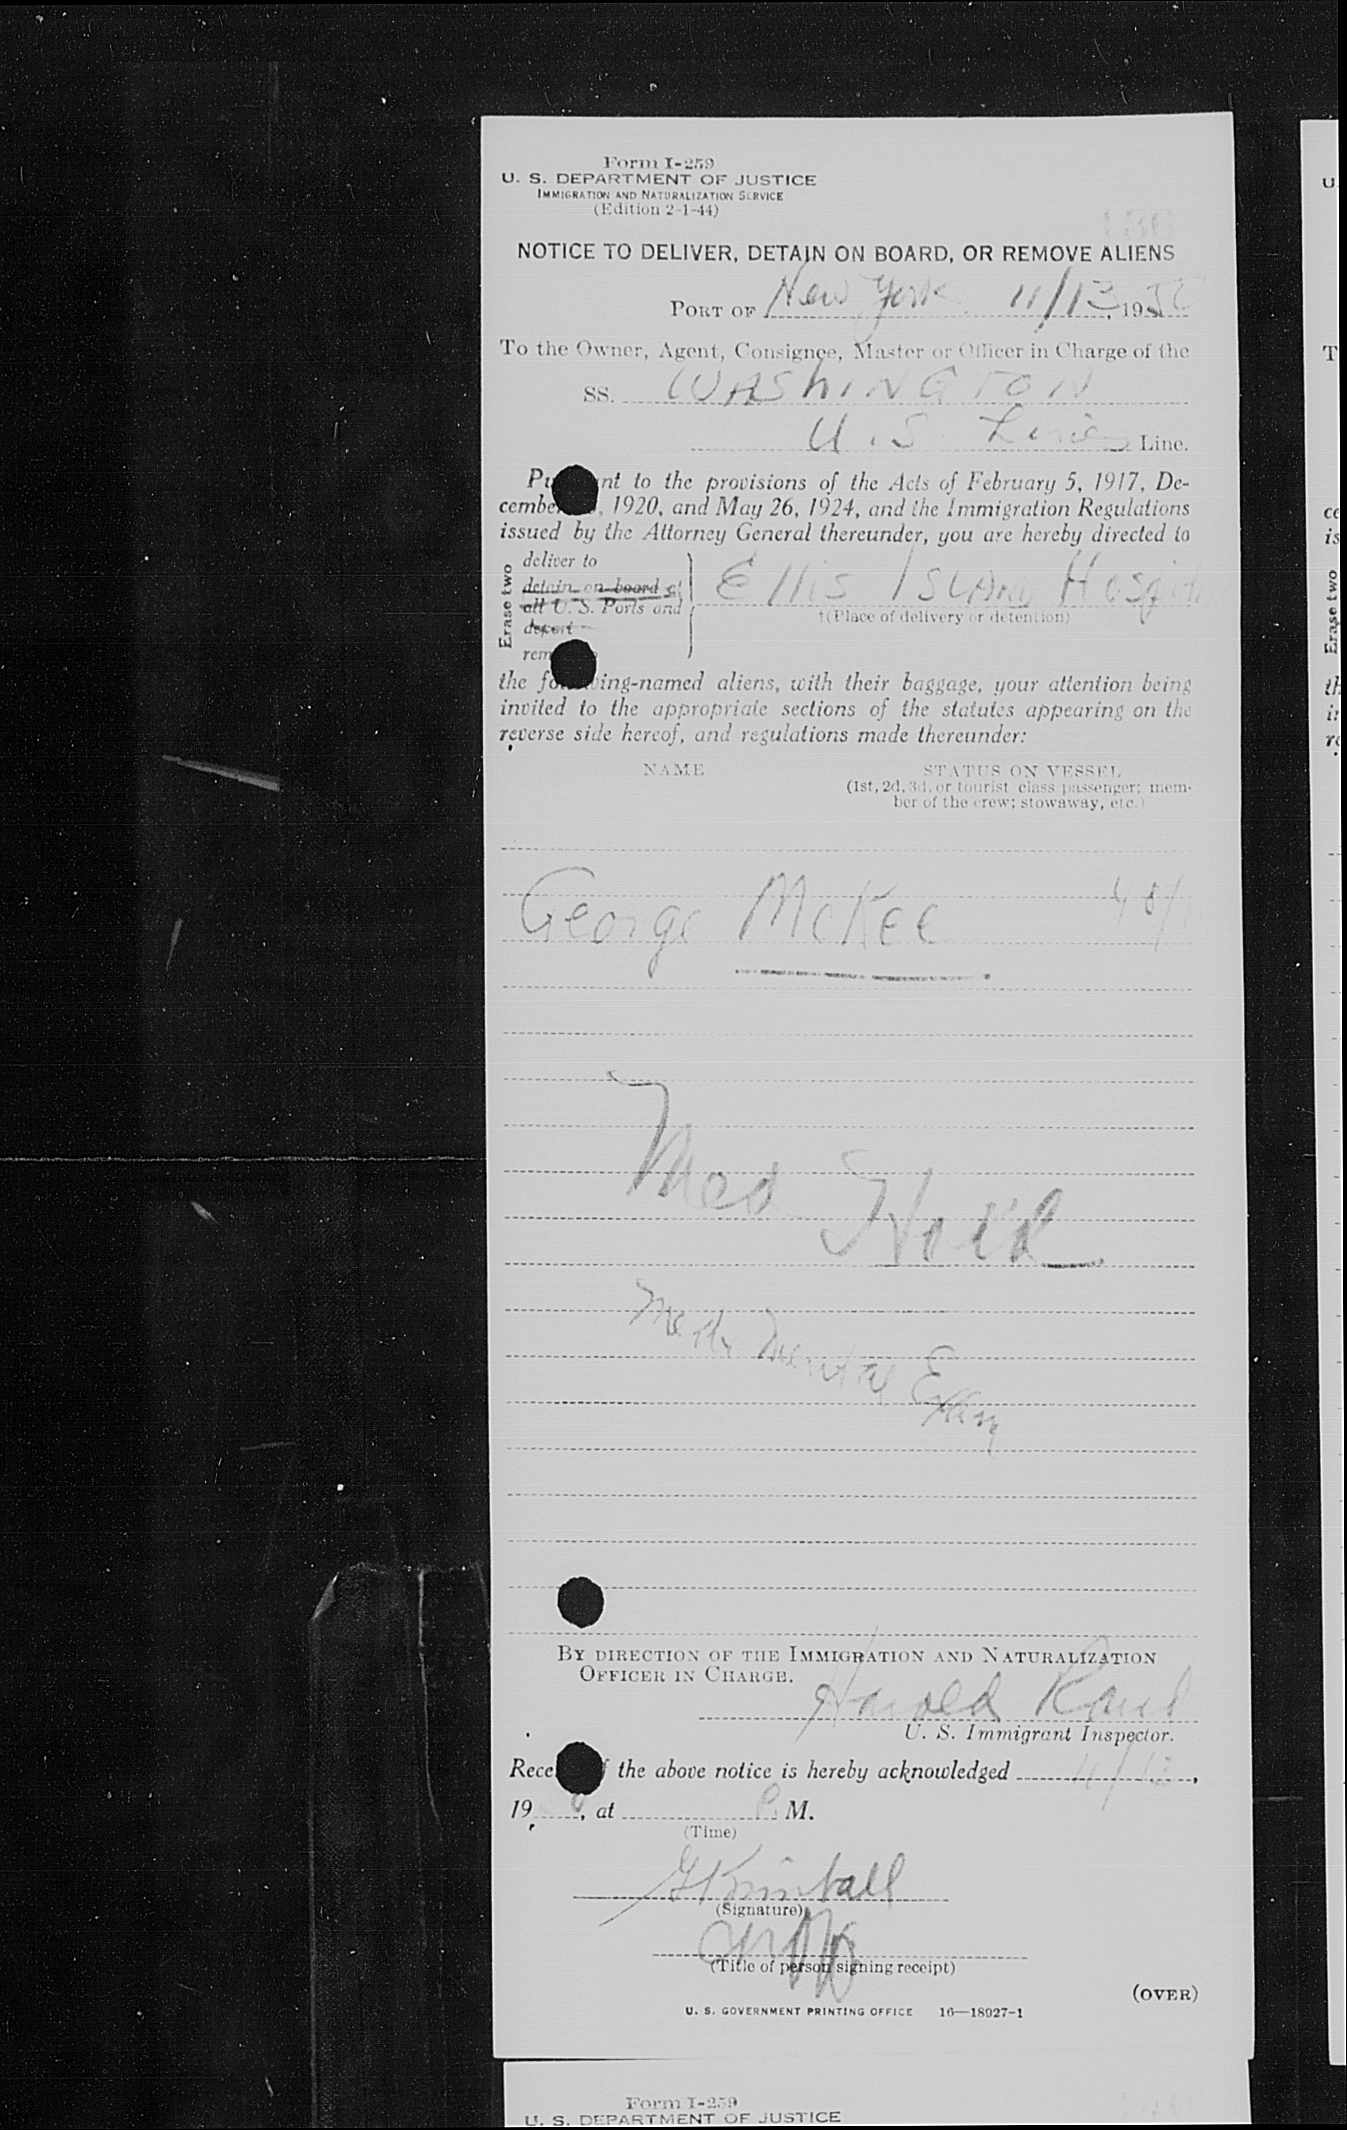 Form I-259
U. S. DEPARTMENT OF JUSTICE
IMMIGRATION AND NATURALIZATION SERVICE
(Edition 2-1-44)
NOTICE TO DELIVER, DETAIN ON BOARD, OR REMOVE ALIENS
PORT OF New York 11/13, 19
To the Owner, Agent, Consignee, Master or Officer in Charge of the
SS. WASHINGTON
U.S. Lines Line.
Pu nt to the provisions of the Acts of February 5, 1917, De-
cembe , 1920, and May 26, 1924, and the Immigration Regulations
issued by the Attorney General thereunder, you are hereby directed to
Erase two
deliver to
detain on board at
all U. S. Ports and
deport
rem
Ellis Island Hospit
†(Place of delivery or detention)
the fo ing-named aliens, with their baggage, your attention being
invited to the appropriate sections of the statutes appearing on the
reverse side hereof, and regulations made thereunder:
NAME STATUS ON VESSEL
(1st, 2d, 3d, or tourist class passenger; mem-
ber of the crew; stowaway, etc.)
George McKee
Med Hold
Mental Exam
BY DIRECTION OF THE IMMIGRATION AND NATURALIZATION
OFFICER IN CHARGE.
Harold
U. S. Immigrant Inspector.
Rece f the above notice is hereby acknowledged 11/13,
19 , at P. M.
(Time)
G Kimball
(Signature)
(Title of person signing receipt)
(OVER)
U. S. GOVERNMENT PRINTING OFFICE 16—18027-1
Form I-259
U. S. DEPARTMENT OF JUSTICE